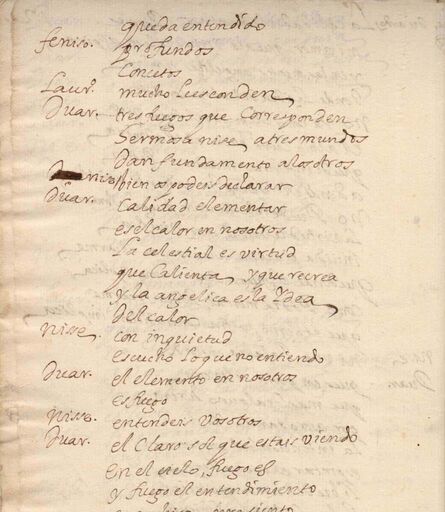 queda entendido
feniso. profundos
Concetos
Laur.º mucho lu esconden
Duar. tres fuegos que Corresponden
hermosa nise a tres mundos
Dan fundamento a los otros
niso/ bien os podeis declarar
Duar. Calidad elementar
es el calor en nosotros
La celestial es virtud
que Calienta y que recrea
y la angelica es la Ydea
del calor
nisse. con inquietud
escucho lo que no entiendo
Duar. el elemento en nosotros
es fuego
niss. entendeis vosotros
Duar. el Claro sol que estais viendo
en el cielo, fuego es
y fuego el entendimiento